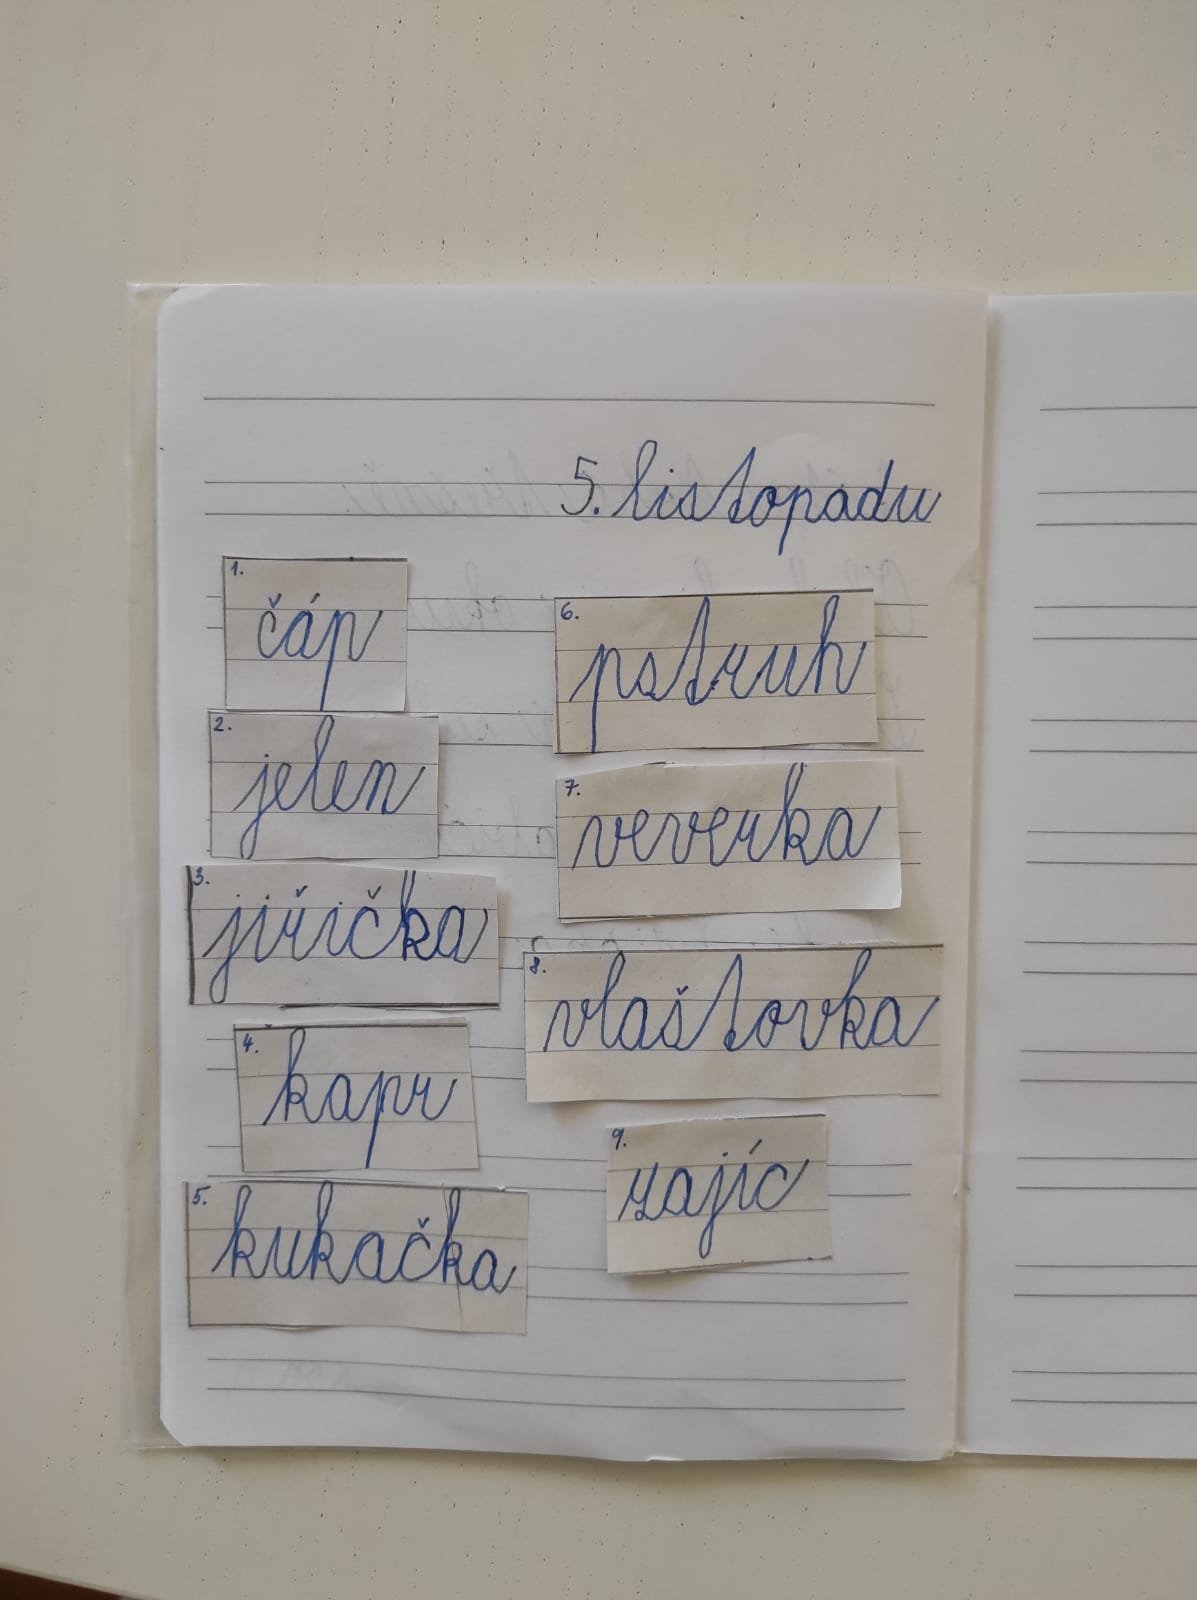 5. listopadu
1.
čáp
2.
jelen
3.
jiřička
4.
kapr
5.
kukačka
6.
pstruh
7.
veverka
8.
vlaštovka
9.
zajíc